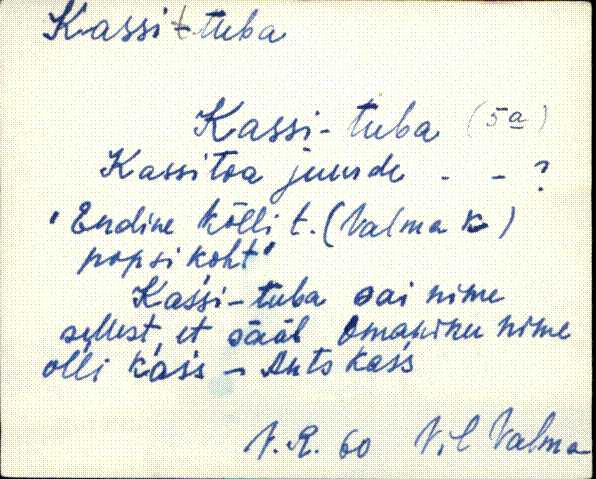 Kassi-tuba
Kassi-tuba (5a)
Kassitoa juurde - - ?
"Endine Kõlli t. (Valma k)
popsikoht"
Kaśśi-tuba sai nime
sellest, et sääl omaniku nime
olli kaśś - Ants Kaśś
V.R. 60 Vil Valma